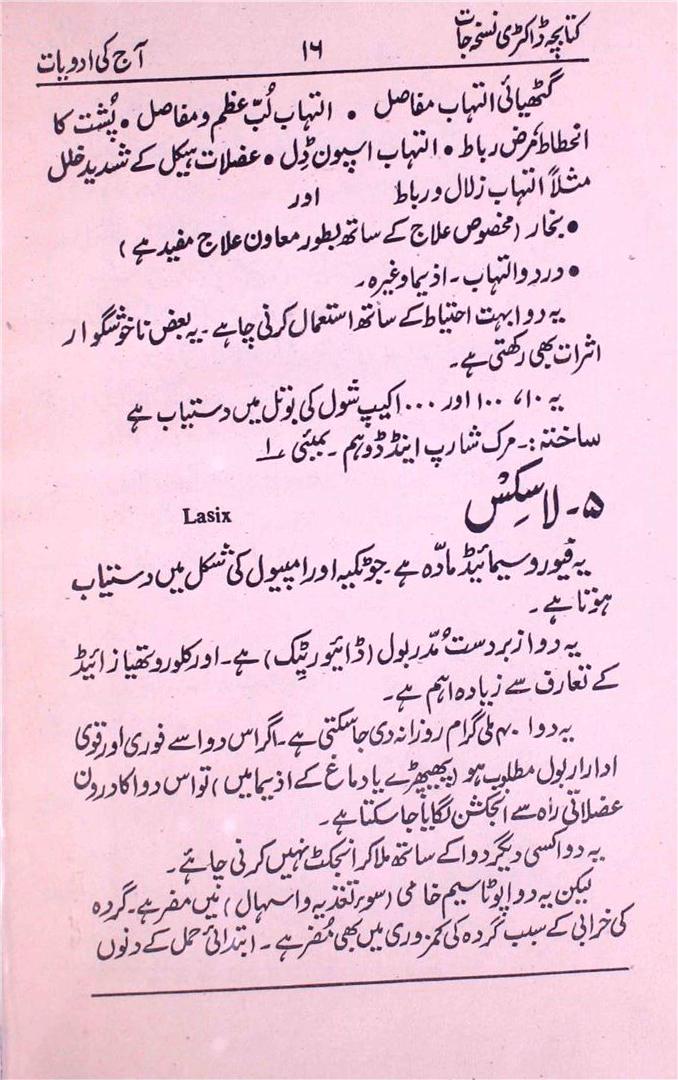 کتابچہ ڈاکٹری نسخہ جات ۱۶ آج کی ادویات
گٹھیائی التہاب مفاصل • التہاب لُبّ عظم و مفاصل • پُشت کا
انحطاط مرضِ رباط • التہاب اسپون ڈِل • عضلات ہیکل کے شدید خلل
مثلاً التہاب زلال و رباط اور
• بخار (مخصوص علاج کے ساتھ بطور معاون علاج مفید ہے)
• درد والتہاب ۔ اذیما وغیرہ ۔
یہ دوا بہت احتیاط کے ساتھ استعمال کرنی چاہے ۔ یہ بعض ناخوشگوار
اثرات بھی رکھتی ہے ۔
یہ ۱۰، ۱۰۰ اور ۱۰۰۰ کیپ شول کی بوتل میں دستیاب ہے
ساختہ :۔ مرک شارپ اینڈ ڈوہم ۔ بمبئی ؁۱
۵۔ لاسِکْس Lasix
یہ فیوروسیمائیڈ مادّہ ہے ۔ جو ٹکیہ اور امپیول کی شکل میں دستیاب
ہوتا ہے ۔
یہ دوا زبردست مُدّر بول (ڈائیورٹِیک) ہے ۔ اور کلوروتھیازائیڈ
کے تعارف سے زیادہ اہم ہے ۔
یہ دوا ۴۰ ملی گرام روزانہ دی جا سکتی ہے ۔ اگر اس دوا سے فوری اور قوی
ادارار بول مطلوب ہو (پھیپھڑے یا دماغ کے اذیما میں) تو اس دوا کا درون
عضلاتی راہ سے انجکشن لگایا جا سکتا ہے ۔
یہ دوا کسی دیگر دوا کے ساتھ ملا کر انجکٹ نہیں کرنی چاہئے ۔
لیکن یہ دوا پوٹاسیم خامی (سوء تغذیہ واسہال) میں مضر ہے ۔ گردہ
کی خرابی کے سبب گردہ کی کمزوری میں بھی مُضر ہے ۔ ابتدائی حمل کے دنوں